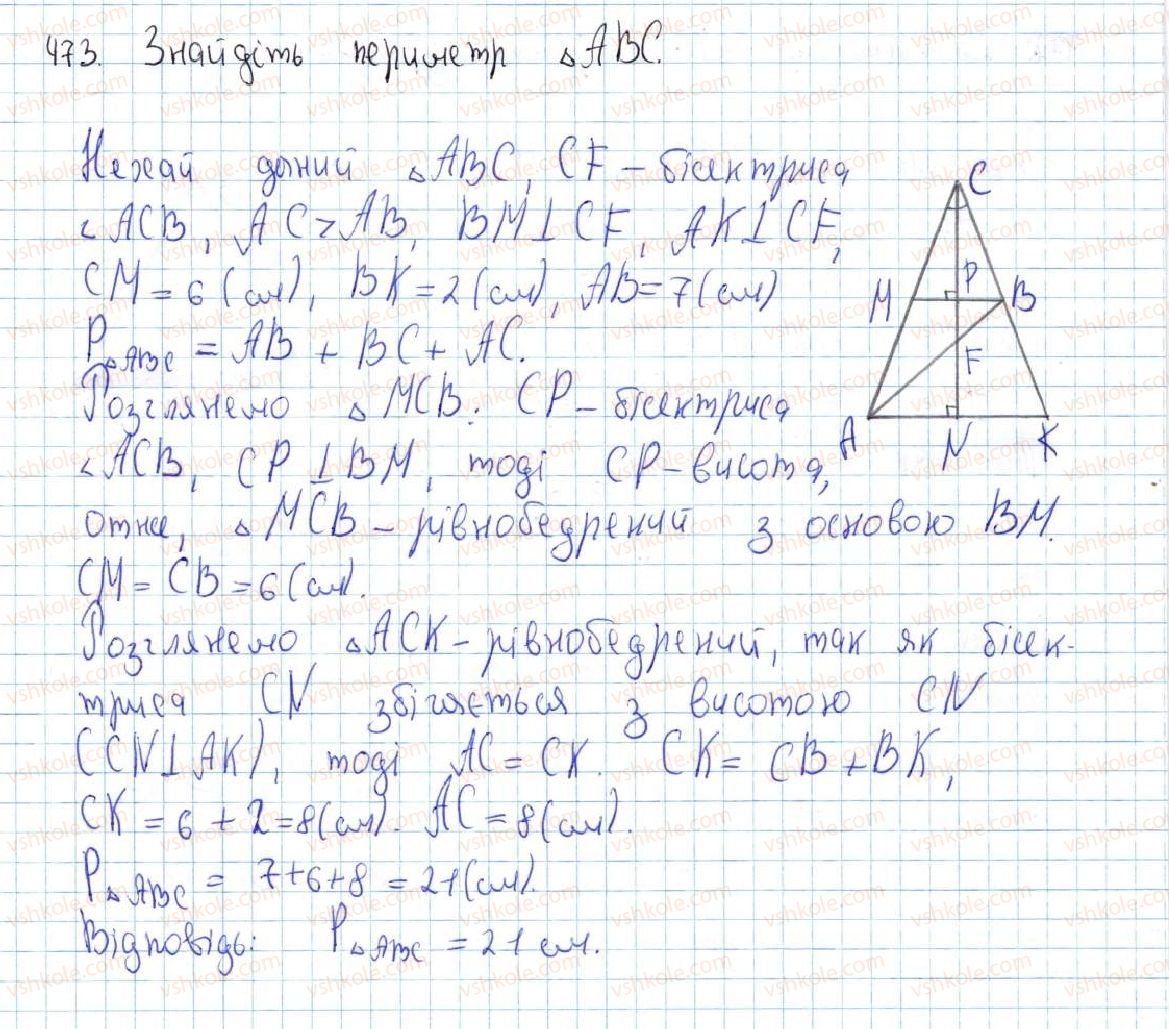 473. Знайдіть периметр △ABC.
Нехай даний △ABC, CF – бісектриса
∠ACB, AC > AB, BM⊥CF, AK⊥CF,
CM = 6 (см), BK = 2 (см), AB = 7 (см)
P△ABC = AB + BC + AC.
Розглянемо △MCB. CP – бісектриса
∠ACB, CP⊥BM, тоді CP – висота,
отже, △MCB – рівнобедрений з основою BM.
CM = CB = 6 (см).
Розглянемо △ACK – рівнобедрений, так як бісек-
триса CN збігається з висотою CN
(CN⊥AK), тоді AC = CK. CK = CB + BK,
CK = 6 + 2 = 8 (см). AC = 8 (см).
P△ABC = 7+6+8 = 21 (см).
Відповідь: P△ABC = 21 см.
C
P
M
B
F
A
N
K
vshkole.com